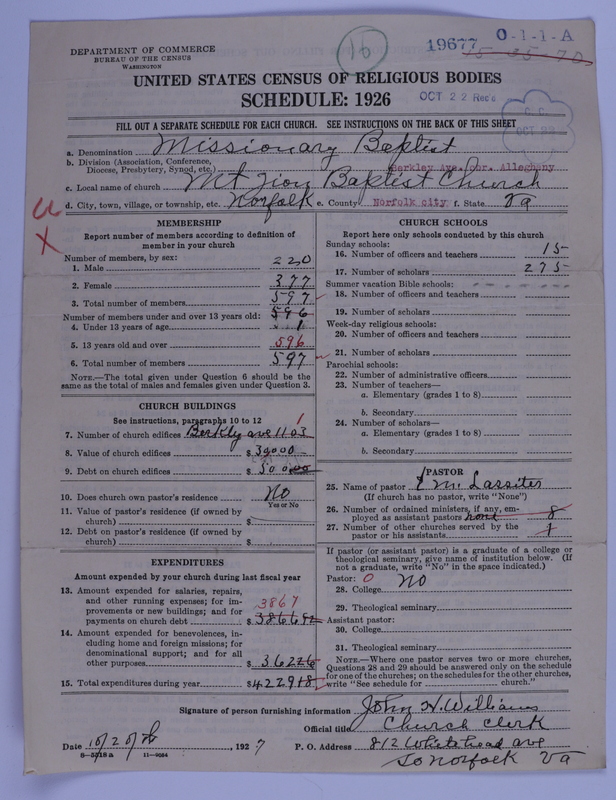 DEPARTMENT OF COMMERCE
BUREAU OF THE CENSUS
WASHINGTON
15
19677
0-1-1-A
15-35-70
UNITED STATES CENSUS OF RELIGIOUS BODIES
SCHEDULE: 1926
OCT 22 Rec'd
FILL OUT A SEPARATE SCHEDULE FOR EACH CHURCH. SEE INSTRUCTIONS ON THE BACK OF THIS SHEET
a. Denomination Missionary Baptist
b. Division (Association, Conference, Diocese, Presbytery, Synod, etc.) Berkley Ave. cor. Alleghany
c. Local name of church Mt Zion Baptist Church
d. City, town, village, or township, etc. Norfolk e. County Norfolk city f. State Va
X
MEMBERSHIP
Report number of members according to definition of member in your church
Number of members, by sex:
1. Male 220
2. Female 377
3. Total number of members 597
Number of members under and over 13 years old: 596
4. Under 13 years of age 1
5. 13 years old and over 596
6. Total number of members 597
NOTE.—The total given under Question 6 should be the same as the total of males and females given under Question 3.
CHURCH BUILDINGS
See instructions, paragraphs 10 to 12 1
7. Number of church edifices Berkly ave 1103
8. Value of church edifices $ 30000
9. Debt on church edifices $ 50000
10. Does church own pastor's residence No
Yes or No
11. Value of pastor's residence (if owned by church) $
12. Debt on pastor's residence (if owned by church) $
EXPENDITURES
Amount expended by your church during last fiscal year
13. Amount expended for salaries, repairs, and other running expenses; for improvements or new buildings; and for payments on church debt 3867 $ 386692
14. Amount expended for benevolences, including home and foreign missions; for denominational support; and for all other purposes $ 36226
15. Total expenditures during year $ 422918
CHURCH SCHOOLS
Report here only schools conducted by this church
Sunday schools:
16. Number of officers and teachers 15
17. Number of scholars 275
Summer vacation Bible schools:
18. Number of officers and teachers
19. Number of scholars
Week-day religious schools:
20. Number of officers and teachers
21. Number of scholars
Parochial schools:
22. Number of administrative officers
23. Number of teachers—
a. Elementary (grades 1 to 8)
b. Secondary
24. Number of scholars—
a. Elementary (grades 1 to 8)
b. Secondary
PASTOR
25. Name of pastor M. Lassiter
(If church has no pastor, write "None")
26. Number of ordained ministers, if any, employed as assistant pastors none 8
27. Number of other churches served by the pastor or his assistants 1
If pastor (or assistant pastor) is a graduate of a college or theological seminary, give name of institution below. (If not a graduate, write "No" in the space indicated.)
Pastor: 0
28. College No
29. Theological seminary
Assistant pastor:
30. College
31. Theological seminary
NOTE.—Where one pastor serves two or more churches, Questions 28 and 29 should be answered only on the schedule for one of the churches; on the schedules for the other churches, write "See schedule for church."
Signature of person furnishing information John H. Williams
Official title Church Clerk
Date 10/20/26, 1927 P. O. Address 812 Whitehead ave
8-5218a 11-9054
So Norfolk Va